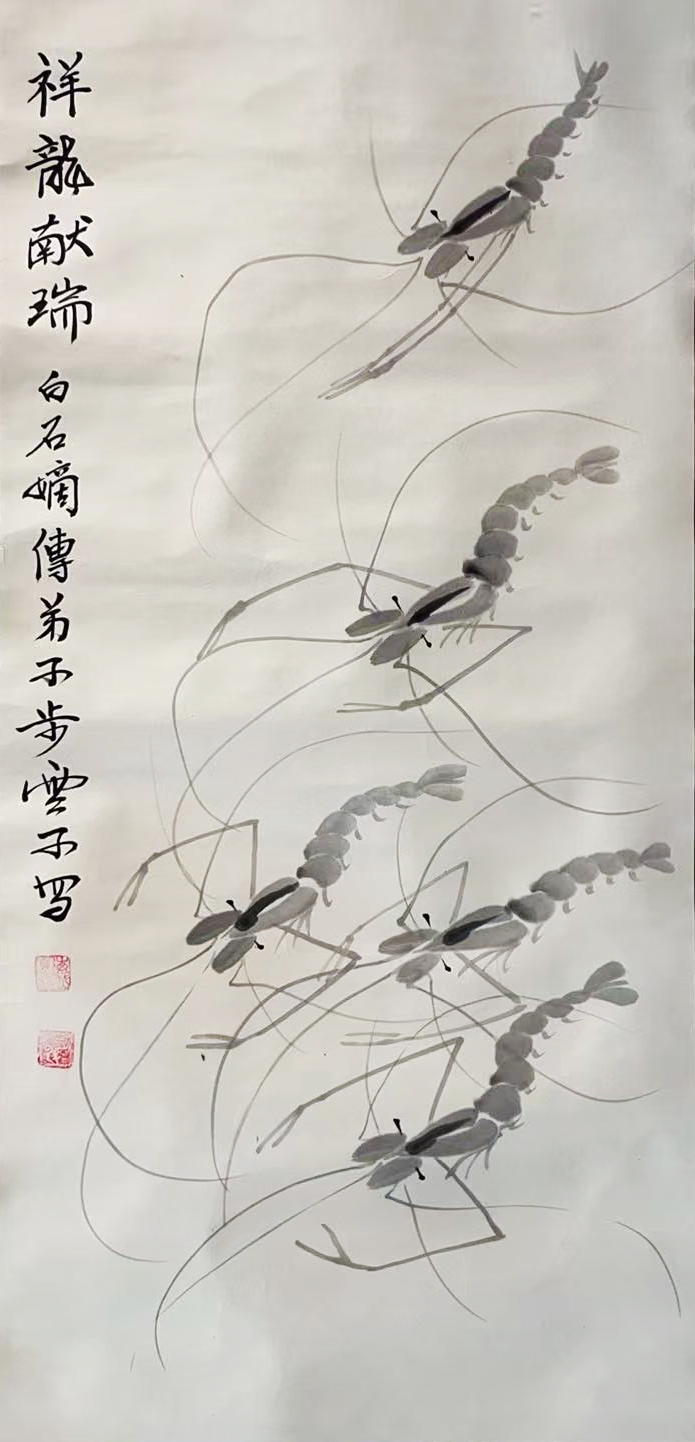 祥龍献瑞
白石嫡傳弟子步雲子写